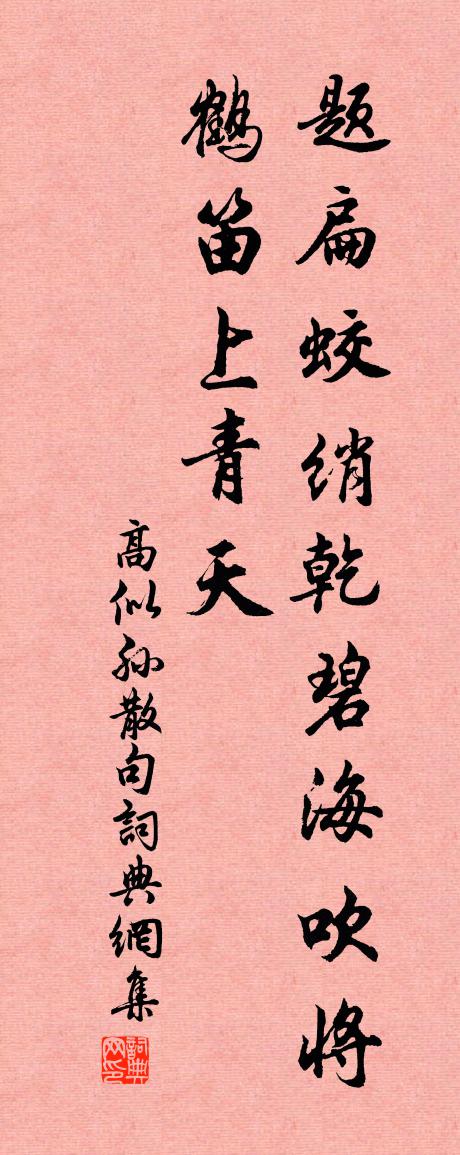 题扁蛟绡乾碧海吹将
鹤笛上青天
高似孙散句詞典網集
詞典网印